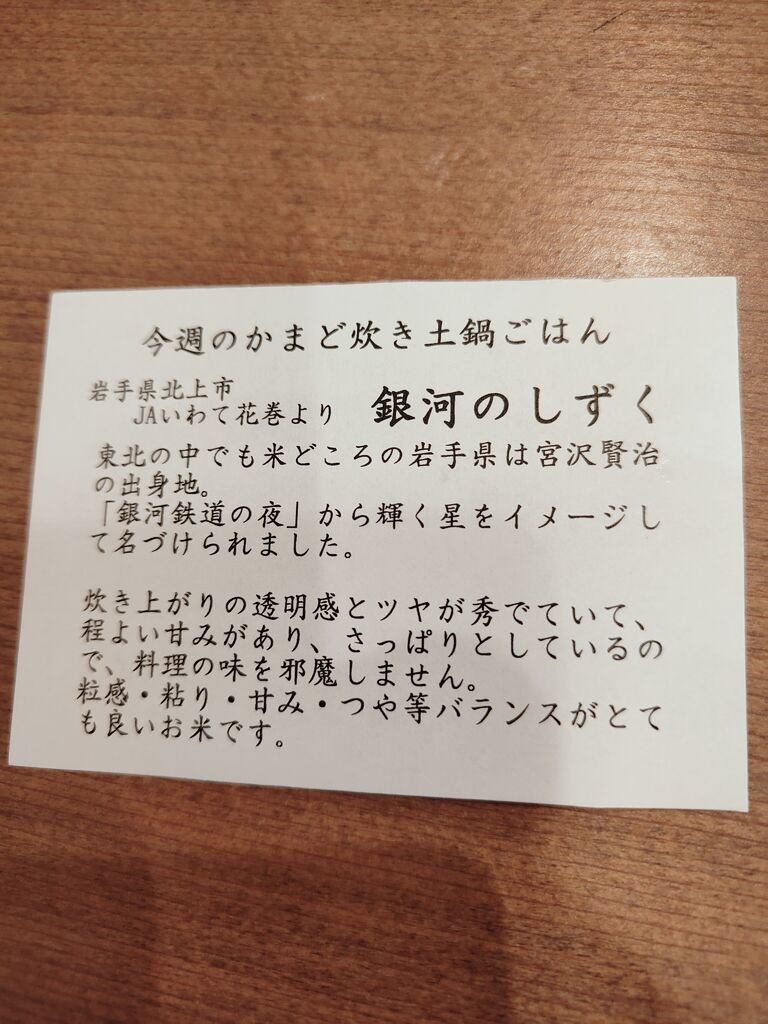 今週のかまど炊き土鍋ごはん
岩手県北上市
JAいわて花巻より 銀河のしずく
東北の中でも米どころの岩手県は宮沢賢治
の出身地。
「銀河鉄道の夜」から輝く星をイメージし
て名づけられました。
炊き上がりの透明感とツヤが秀でていて、
程よい甘みがあり、さっぱりとしているの
で、料理の味を邪魔しません。
粒感・粘り・甘み・つや等バランスがとて
も良いお米です。